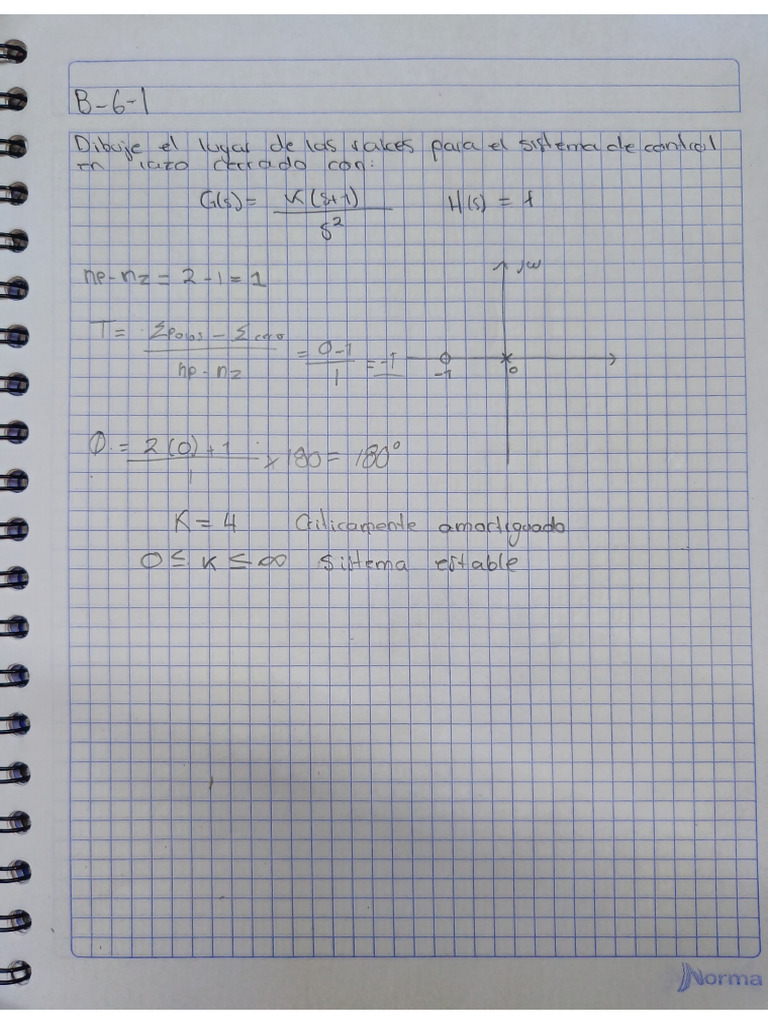 B-6-1
Dibuje el lugar de las raices para el sistema de control
en lazo cerrado con:
G(s) = K(s+1) / s² H(s) = 1
np-nz = 2-1 = 1
jω
T = Σpolos - Σceros / np-nz = 0-1 / 1 = -1
-1 0
Ø = 2(0)+1 / 1 × 180 = 180°
K = 4 Criticamente amortiguado
0 ≤ K ≤ ∞ sistema estable
Norma